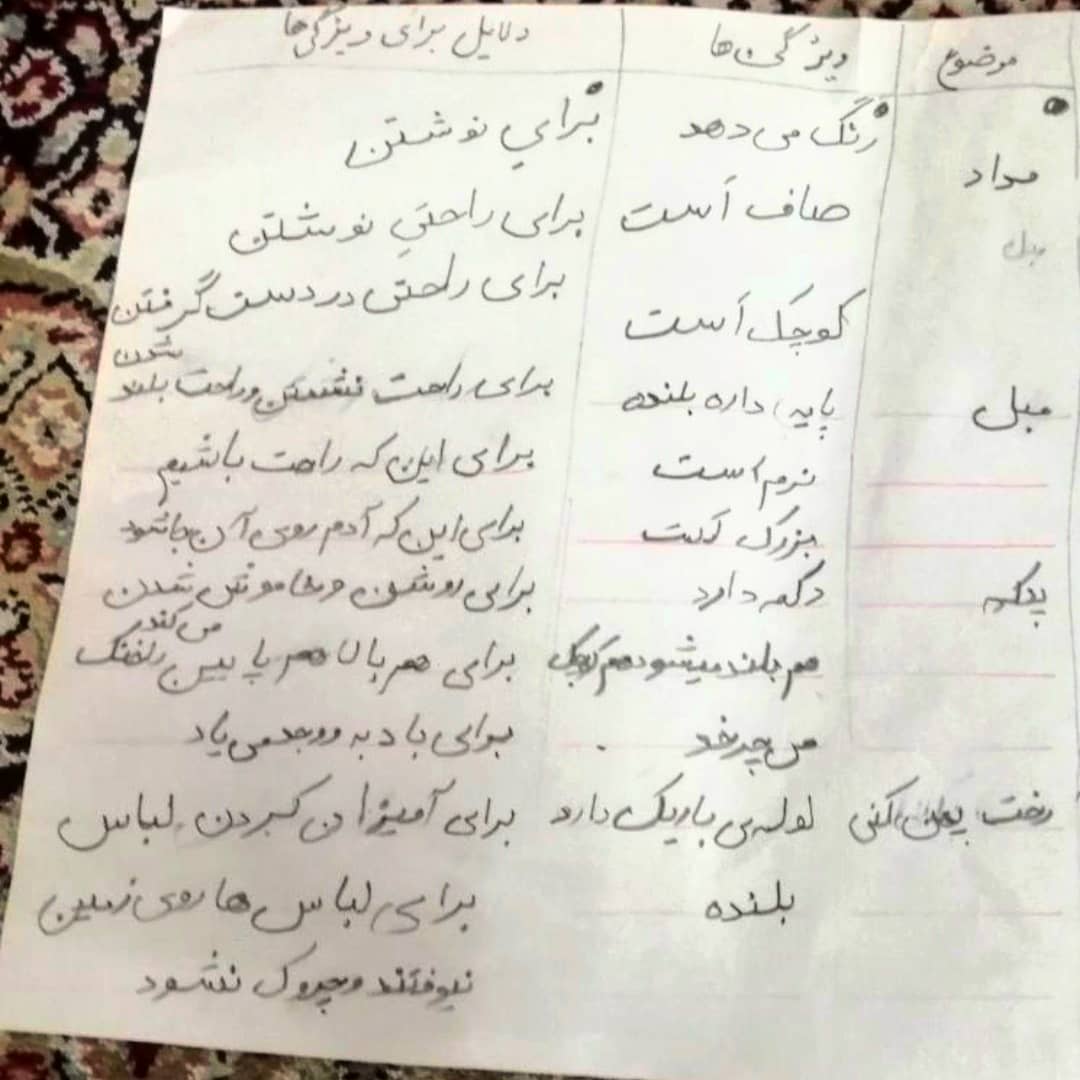 موضوع ویژگی ها دلایل برای ویژگی ها
مداد رنگ می دهد برای نوشتن
مبل
صاف اَست برای راحتیِ نوشتن
کوچک اَست برای راحتی در دست گرفتن
مبل پایه داره بلنده برای راحت نشستن و راحت بلند شدن
نرم است برای این که راحت باشیم
بزرگ است برای این که آدم روی آن جا شود
پنکه دکمه دارد برای روشن و خاموش شدن
هم بلند میشود هم کوچک برای هم بالا هم پایین می کند
می چرخد برای باد به وجود می یاد
رخت پهن کنی لوله ی باریک دارد برای آمیزان کردن لباس
بلنده برای لباس ها روی زمین
نیوفتند و چروک نشود